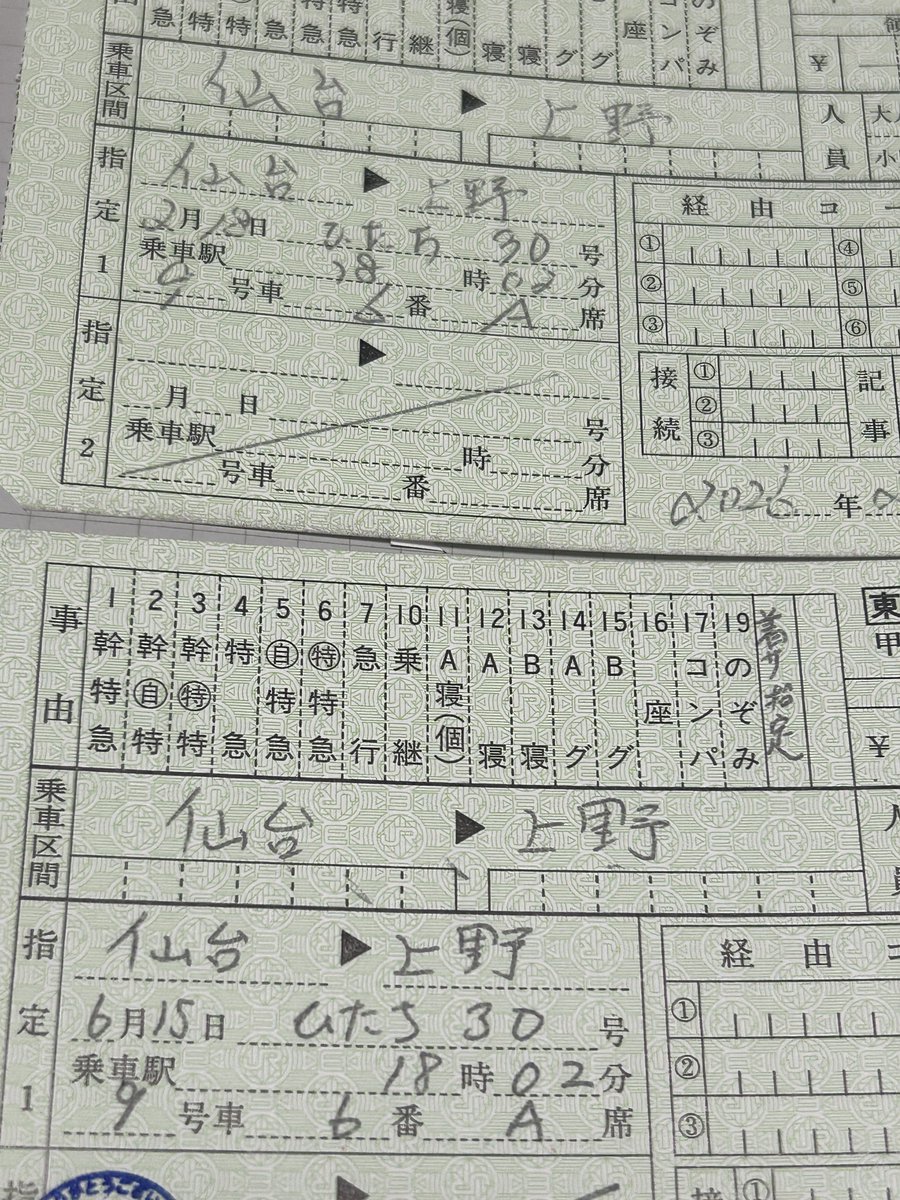 由 急 特 特 急 急 急 行 継 寝(個) 寝 寝 グ グ 座 コンパ のぞみ
¥
乗車区間 仙台 ▶ 上野 人員 大人
小
指定1 仙台 ▶ 上野
2月18日 ひたち 30 号
乗車駅 18時02分
9号車 6番 A席
経由コー
① ④
② ⑤
③ ⑥
指定2 ▶
月 日 号
乗車駅 時 分
号車 番 席
接続 ① ② ③ 記事
2026年
事由
1 幹特急
2 幹㊀特
3 幹㊕特
4 特急
5 ㊀特急
6 ㊕特急
7 急行
10 乗継
11 A寝(個)
12 A寝
13 B寝
14 Aグ
15 Bグ
16 座
17 コンパ
19 のぞみ
指定
東
甲
¥
乗車区間 仙台 ▶ 上野 人員
指定1 仙台 ▶ 上野
6月15日 ひたち 30 号
乗車駅 18時02分
9号車 6番 A席
経由コ
①
②
③
指 ▶
接 ①